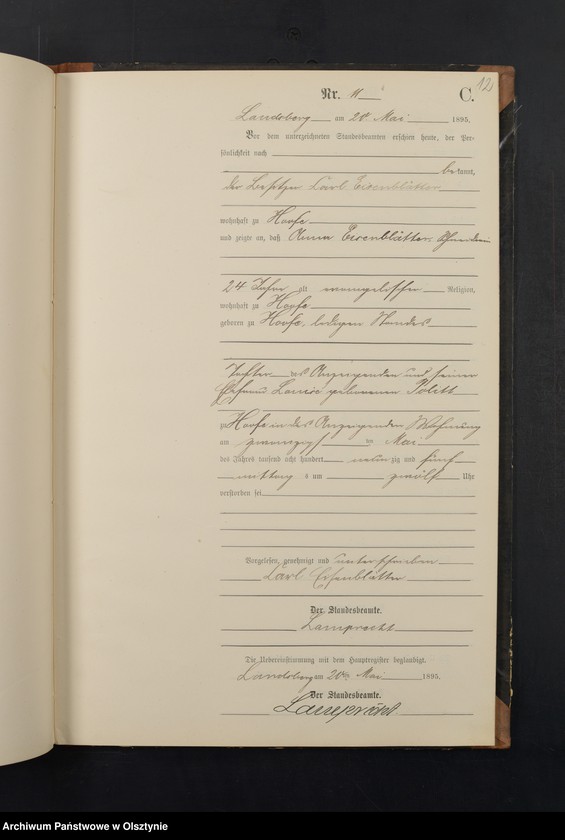 12
Nr. 11 C.
Landsberg am 20 Mai 1895.
Vor dem unterzeichneten Standesbeamten erschien heute, der Per-
sönlichkeit nach
bekannt,
der Besitzer Carl Eisenblätter
wohnhaft zu Hoofe
und zeigte an, daß Anna Eisenblätter, Schneiderin
24 Jahre alt evangelischer Religion,
wohnhaft zu Hoofe
geboren zu Hoofe, ledigen Standes
Tochter des Anzeigenden und seiner
Ehefrau Louise geborenen Politt
zu Hoofe in des Anzeigenden Wohnung
am zwanzigsten Mai
des Jahres tausend acht hundert neunzig und fünf
mittag s um zwölf Uhr
verstorben sei
Vorgelesen, genehmigt und unterschrieben
Carl Eisenblätter
Der Standesbeamte.
Lamprecht
Die Uebereinstimmung mit dem Hauptregister beglaubigt.
Landsberg am 20 Mai 1895.
Der Standesbeamte.
Lamprecht
Archiwum Państwowe w Olsztynie